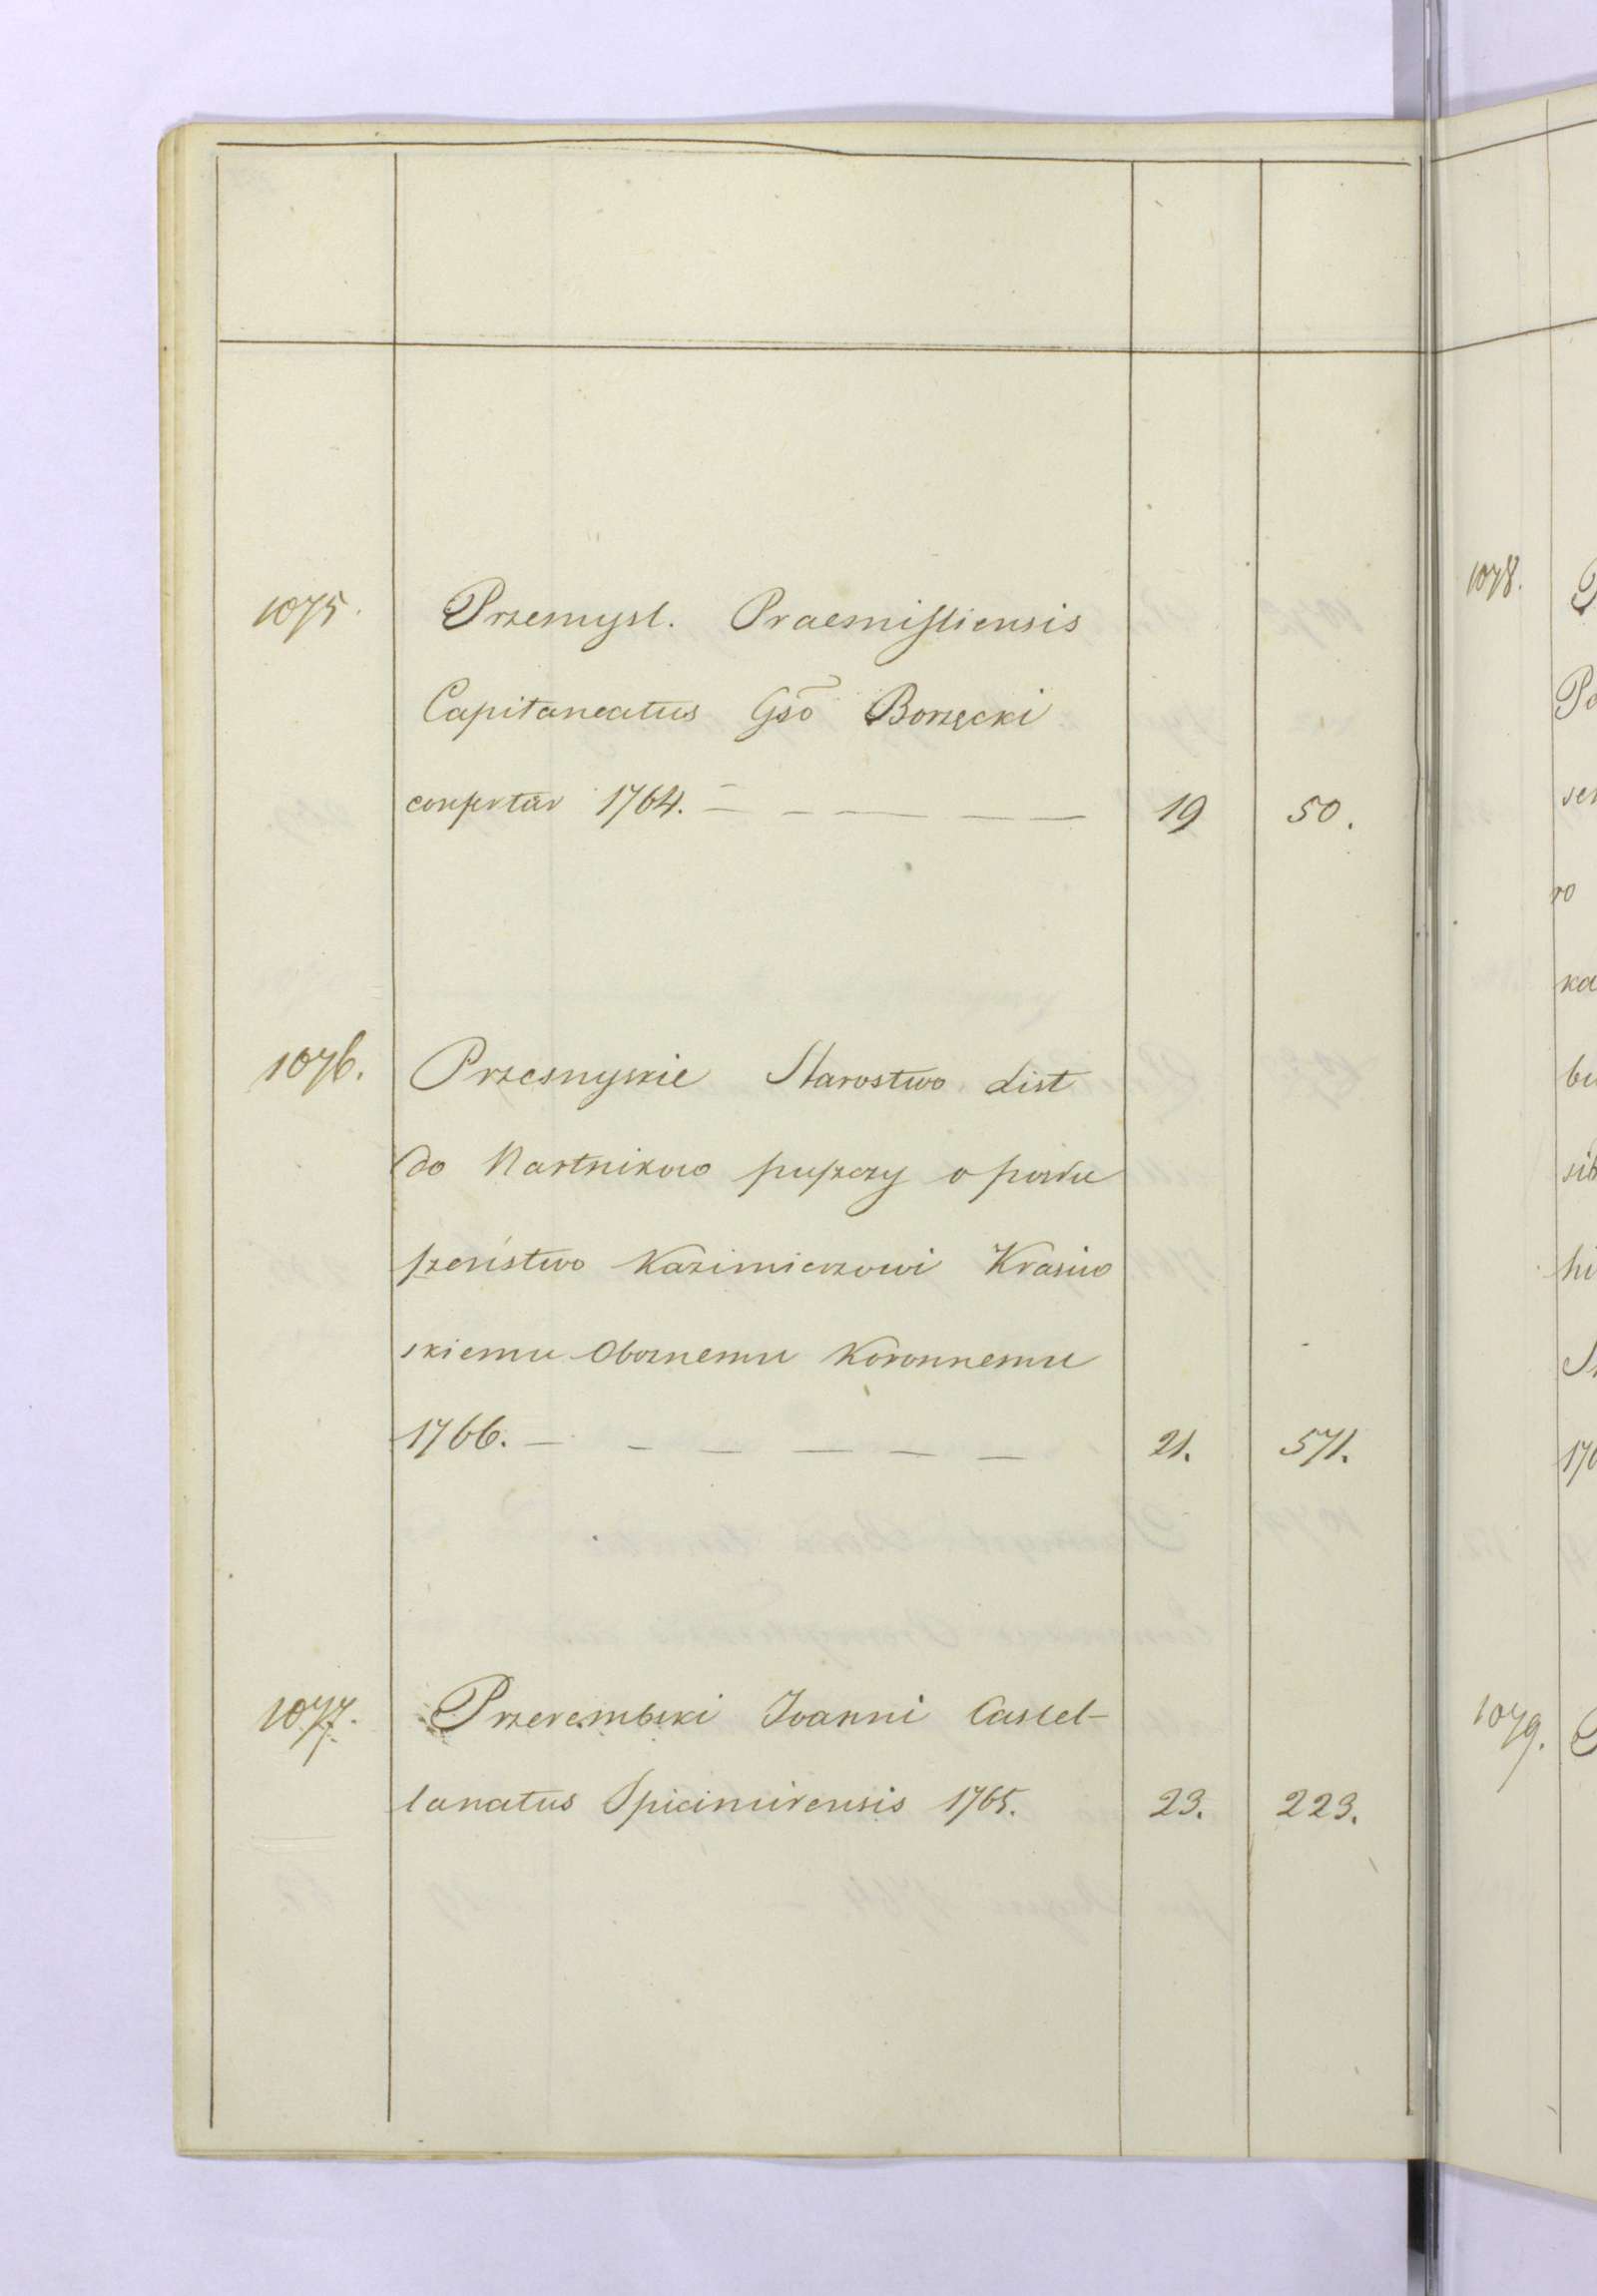 1075. Przemysl. Praemisliensis
Capitaneatus Gso Borzęcki
confrtur 1764. - - - - - 19 50.
1076. Przesnyskie Starostwo List
do Nartnikow puszczy o posłu
szeństwo Kazimierzowi Krasin
skiemu Oboznemu Koronnemu
1766. - - - - - - 21. 571.
1077. Przerembski Joanni Castel-
lanatus Spicimirensis 1765. 23. 223.
1078.
Po
ser
ro
ka
bu
sib
hi
176
1079.